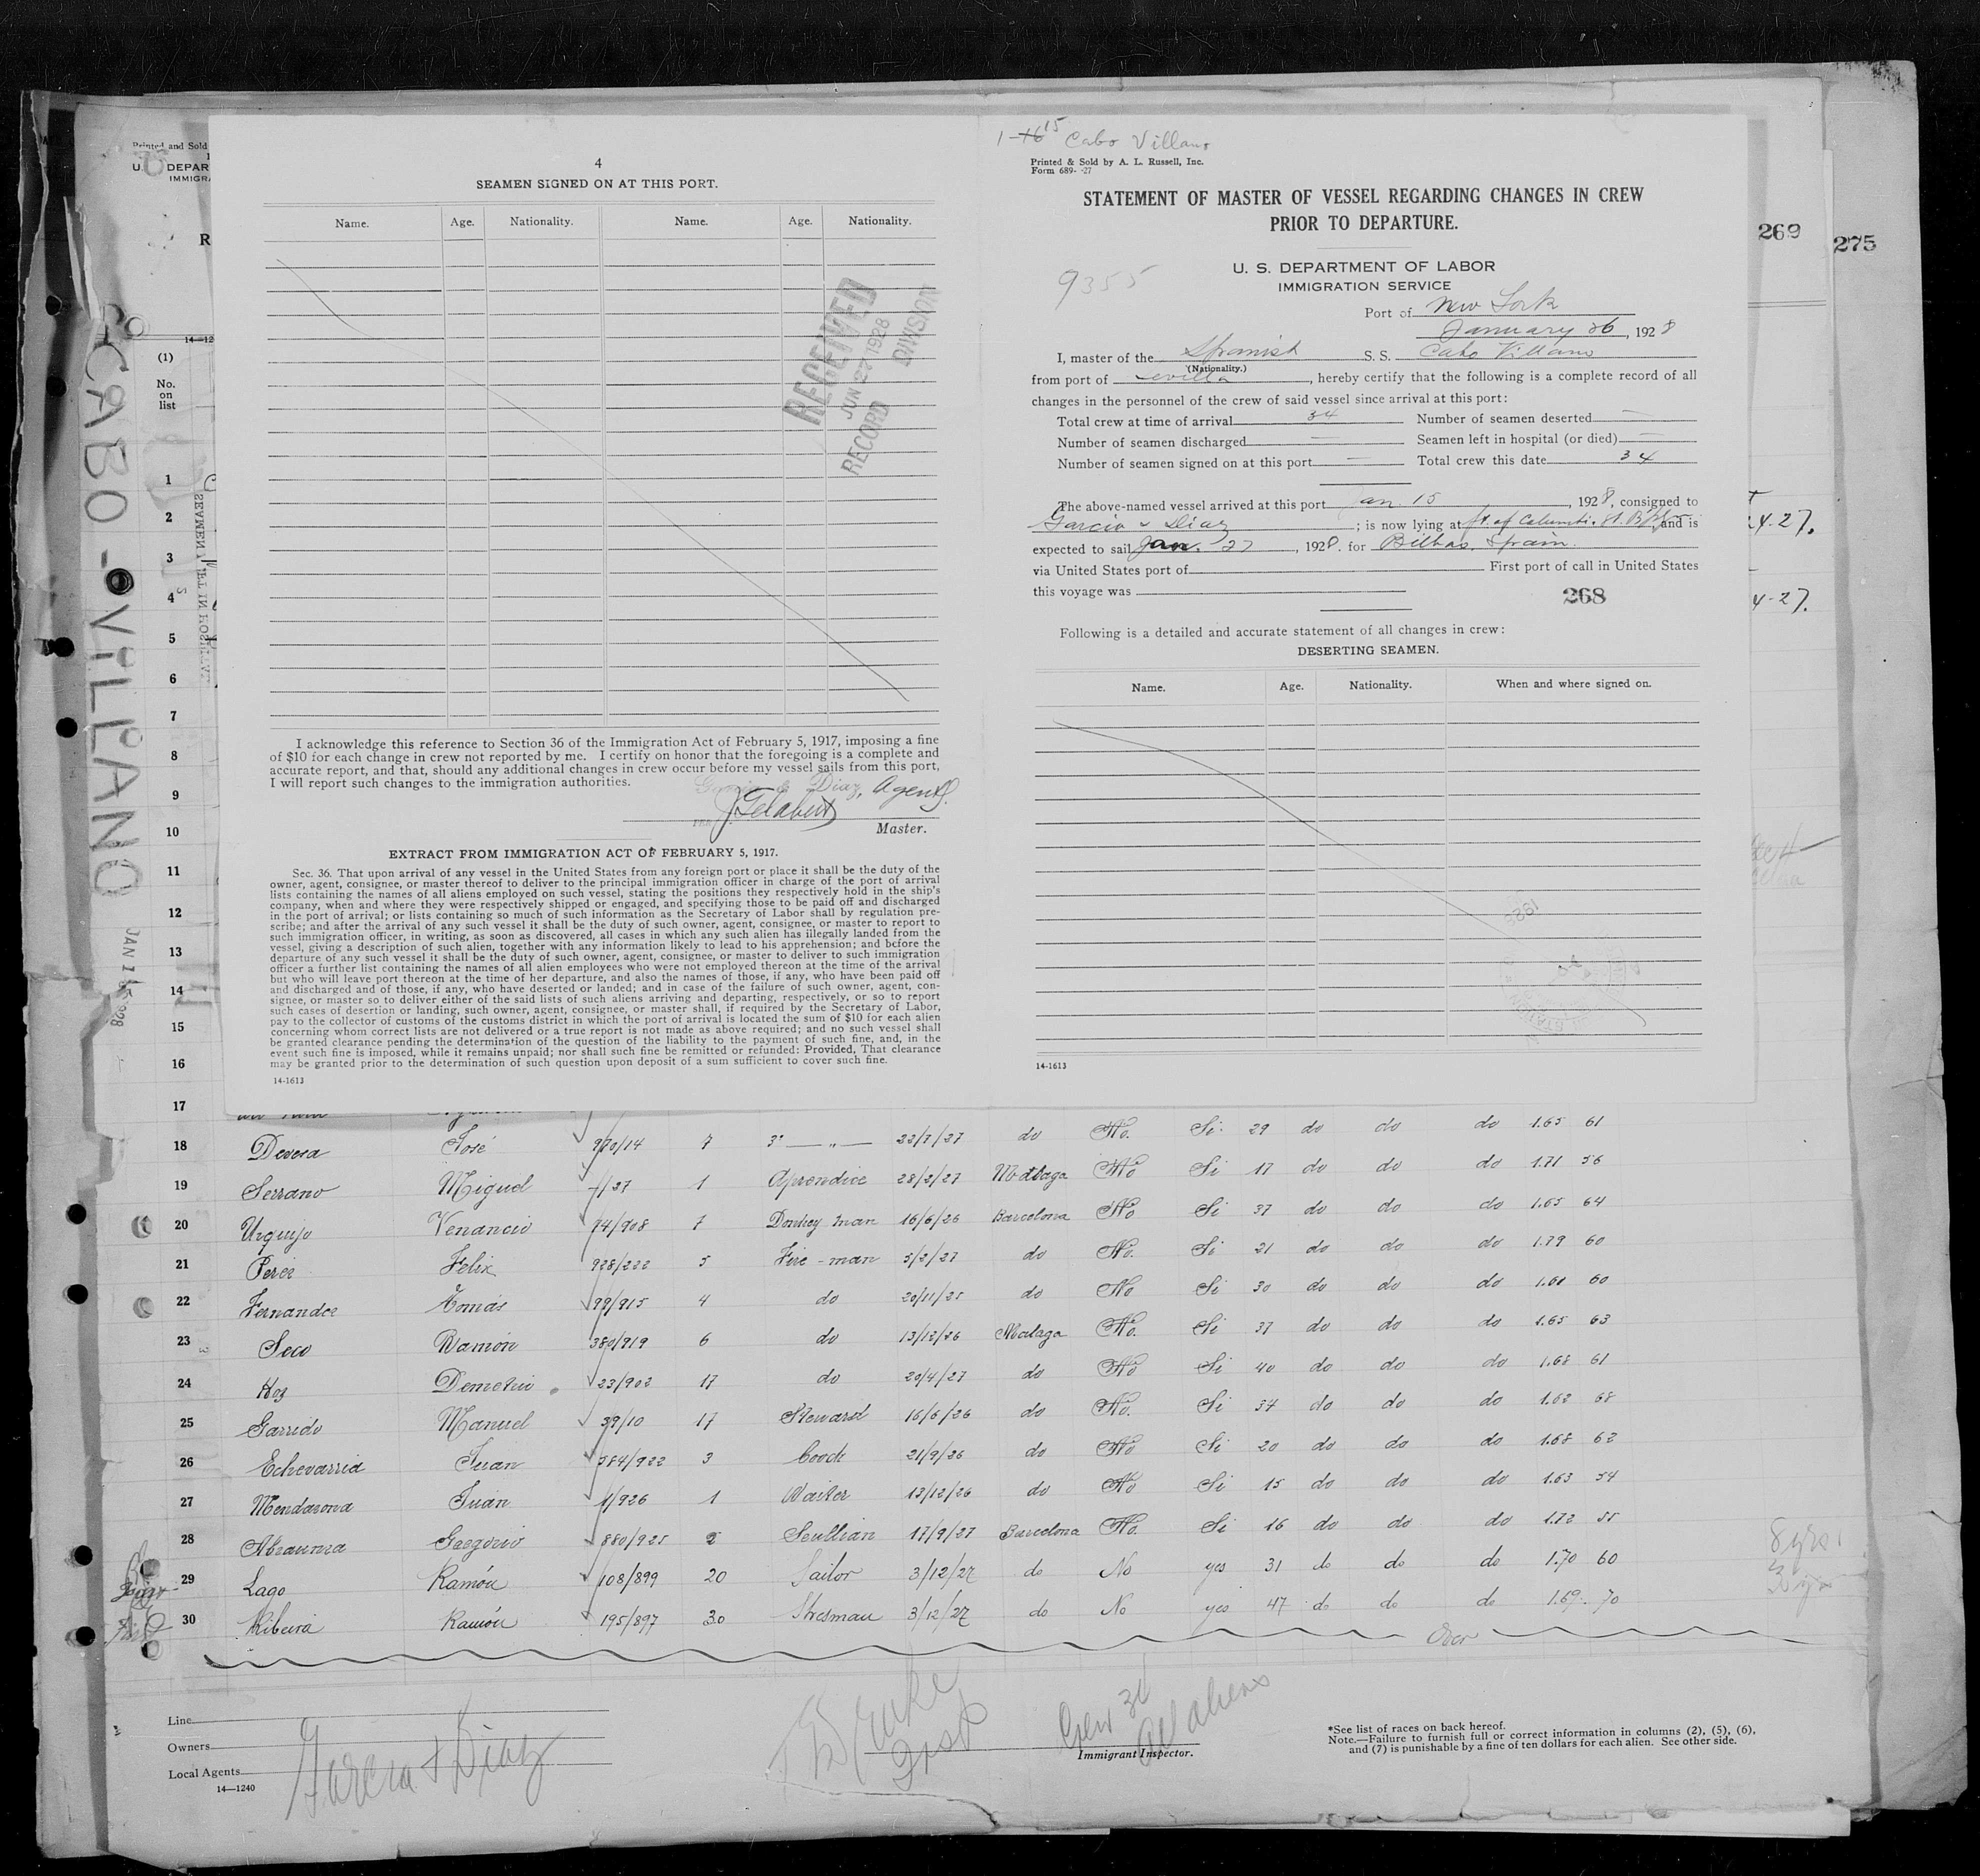 Printed and Sold
U. S. DEPAR
IMMIGRA
R
14—12
(1)
No.
on
list
1
2
3
4
5
6
7
8
9
10
11
12
13
14
15
16
17
CABO - VILLANO
JAN 15 1928
SEAMEN LEFT IN HOSPITAL
4
SEAMEN SIGNED ON AT THIS PORT.
Name. Age. Nationality. Name. Age. Nationality.
RECEIVED
JUN 27 1928
RECORD DIVISION
I acknowledge this reference to Section 36 of the Immigration Act of February 5, 1917, imposing a fine
of $10 for each change in crew not reported by me. I certify on honor that the foregoing is a complete and
accurate report, and that, should any additional changes in crew occur before my vessel sails from this port,
I will report such changes to the immigration authorities.
Garcia & Diaz, Agents.
PER J. Gelabert
Master.
EXTRACT FROM IMMIGRATION ACT OF FEBRUARY 5, 1917.
Sec. 36. That upon arrival of any vessel in the United States from any foreign port or place it shall be the duty of the
owner, agent, consignee, or master thereof to deliver to the principal immigration officer in charge of the port of arrival
lists containing the names of all aliens employed on such vessel, stating the positions they respectively hold in the ship's
company, when and where they were respectively shipped or engaged, and specifying those to be paid off and discharged
in the port of arrival; or lists containing so much of such information as the Secretary of Labor shall by regulation pre-
scribe; and after the arrival of any such vessel it shall be the duty of such owner, agent, consignee, or master to report to
such immigration officer, in writing, as soon as discovered, all cases in which any such alien has illegally landed from the
vessel, giving a description of such alien, together with any information likely to lead to his apprehension; and before the
departure of any such vessel it shall be the duty of such owner, agent, consignee, or master to deliver to such immigration
officer a further list containing the names of all alien employees who were not employed thereon at the time of the arrival
but who will leave port thereon at the time of her departure, and also the names of those, if any, who have been paid off
and discharged and of those, if any, who have deserted or landed; and in case of the failure of such owner, agent, con-
signee, or master so to deliver either of the said lists of such aliens arriving and departing, respectively, or so to report
such cases of desertion or landing, such owner, agent, consignee, or master shall, if required by the Secretary of Labor,
pay to the collector of customs of the customs district in which the port of arrival is located the sum of $10 for each alien
concerning whom correct lists are not delivered or a true report is not made as above required; and no such vessel shall
be granted clearance pending the determination of the question of the liability to the payment of such fine, and, in the
event such fine is imposed, while it remains unpaid; nor shall such fine be remitted or refunded: Provided, That clearance
may be granted prior to the determination of such question upon deposit of a sum sufficient to cover such fine.
14-1613
1-16 15 Cabo Villano
Printed & Sold by A. L. Russell, Inc.
Form 689- -27
STATEMENT OF MASTER OF VESSEL REGARDING CHANGES IN CREW
PRIOR TO DEPARTURE.
9355
U. S. DEPARTMENT OF LABOR
IMMIGRATION SERVICE
Port of New York
January 26, 1928
I, master of the Spanish S. S. Cabo Villano
(Nationality.)
from port of Sevilla, hereby certify that the following is a complete record of all
changes in the personnel of the crew of said vessel since arrival at this port:
Total crew at time of arrival 34 Number of seamen deserted —
Number of seamen discharged — Seamen left in hospital (or died) —
Number of seamen signed on at this port — Total crew this date 34
The above-named vessel arrived at this port Jan. 15, 1928, consigned to
Garcia & Diaz; is now lying at ft. of Columbia St. Bklyn and is
expected to sail Jan. 27, 1928. for Bilbao, Spain.
via United States port of First port of call in United States
this voyage was
268
Following is a detailed and accurate statement of all changes in crew:
DESERTING SEAMEN.
Name. Age. Nationality. When and where signed on.
14-1613
269
275
4-27.
4-27.
18 Devesa José 970/14 7 3º — " — 22/7/27 do No. Si 29 do do do 1.65 61
19 Serrano Miguel 1/27 1 Aprendice 28/2/27 Malaga No Si 17 do do do 1.71 56
20 Urquijo Venancio 74/908 7 Donkey man 16/6/26 Barcelona No Si 37 do do do 1.65 64
21 Perez Felix 928/222 5 Fire-man 5/2/27 do No. Si 21 do do do 1.79 60
22 Fernandez Tomás 99/915 4 do 20/11/25 do No Si 30 do do do 1.60 60
23 Seco Ramón 380/919 6 do 13/12/26 Malaga No. Si 37 do do do 1.65 63
24 Hoz Demetrio 23/902 17 do 20/4/27 do No Si 40 do do do 1.68 61
25 Garrido Manuel 39/10 17 Steward 16/6/26 do No. Si 34 do do do 1.62 68
26 Echevarria Juan 584/922 3 Cook 21/9/26 do No Si 20 do do do 1.68 62
27 Mendazona Juan 1/926 1 Waiter 13/12/26 do No Si 15 do do do 1.63 54
28 Abaunza Gregorio 880/925 2 Scullian 17/9/27 Barcelona No. Si 16 do do do 1.72 55
29 Lago Ramón 108/899 20 Sailor 3/12/27 do No yes 31 do do do 1.70 60
30 Ribeira Ramón 195/897 30 Firesman 3/12/27 do No yes 47 do do do 1.69 70
8 yrs.
Over
Line
Owners
Local Agents
Garcia & Diaz
14—1240
Crew 34
All aliens
Immigrant Inspector.
*See list of races on back hereof.
Note.—Failure to furnish full or correct information in columns (2), (5), (6),
and (7) is punishable by a fine of ten dollars for each alien. See other side.